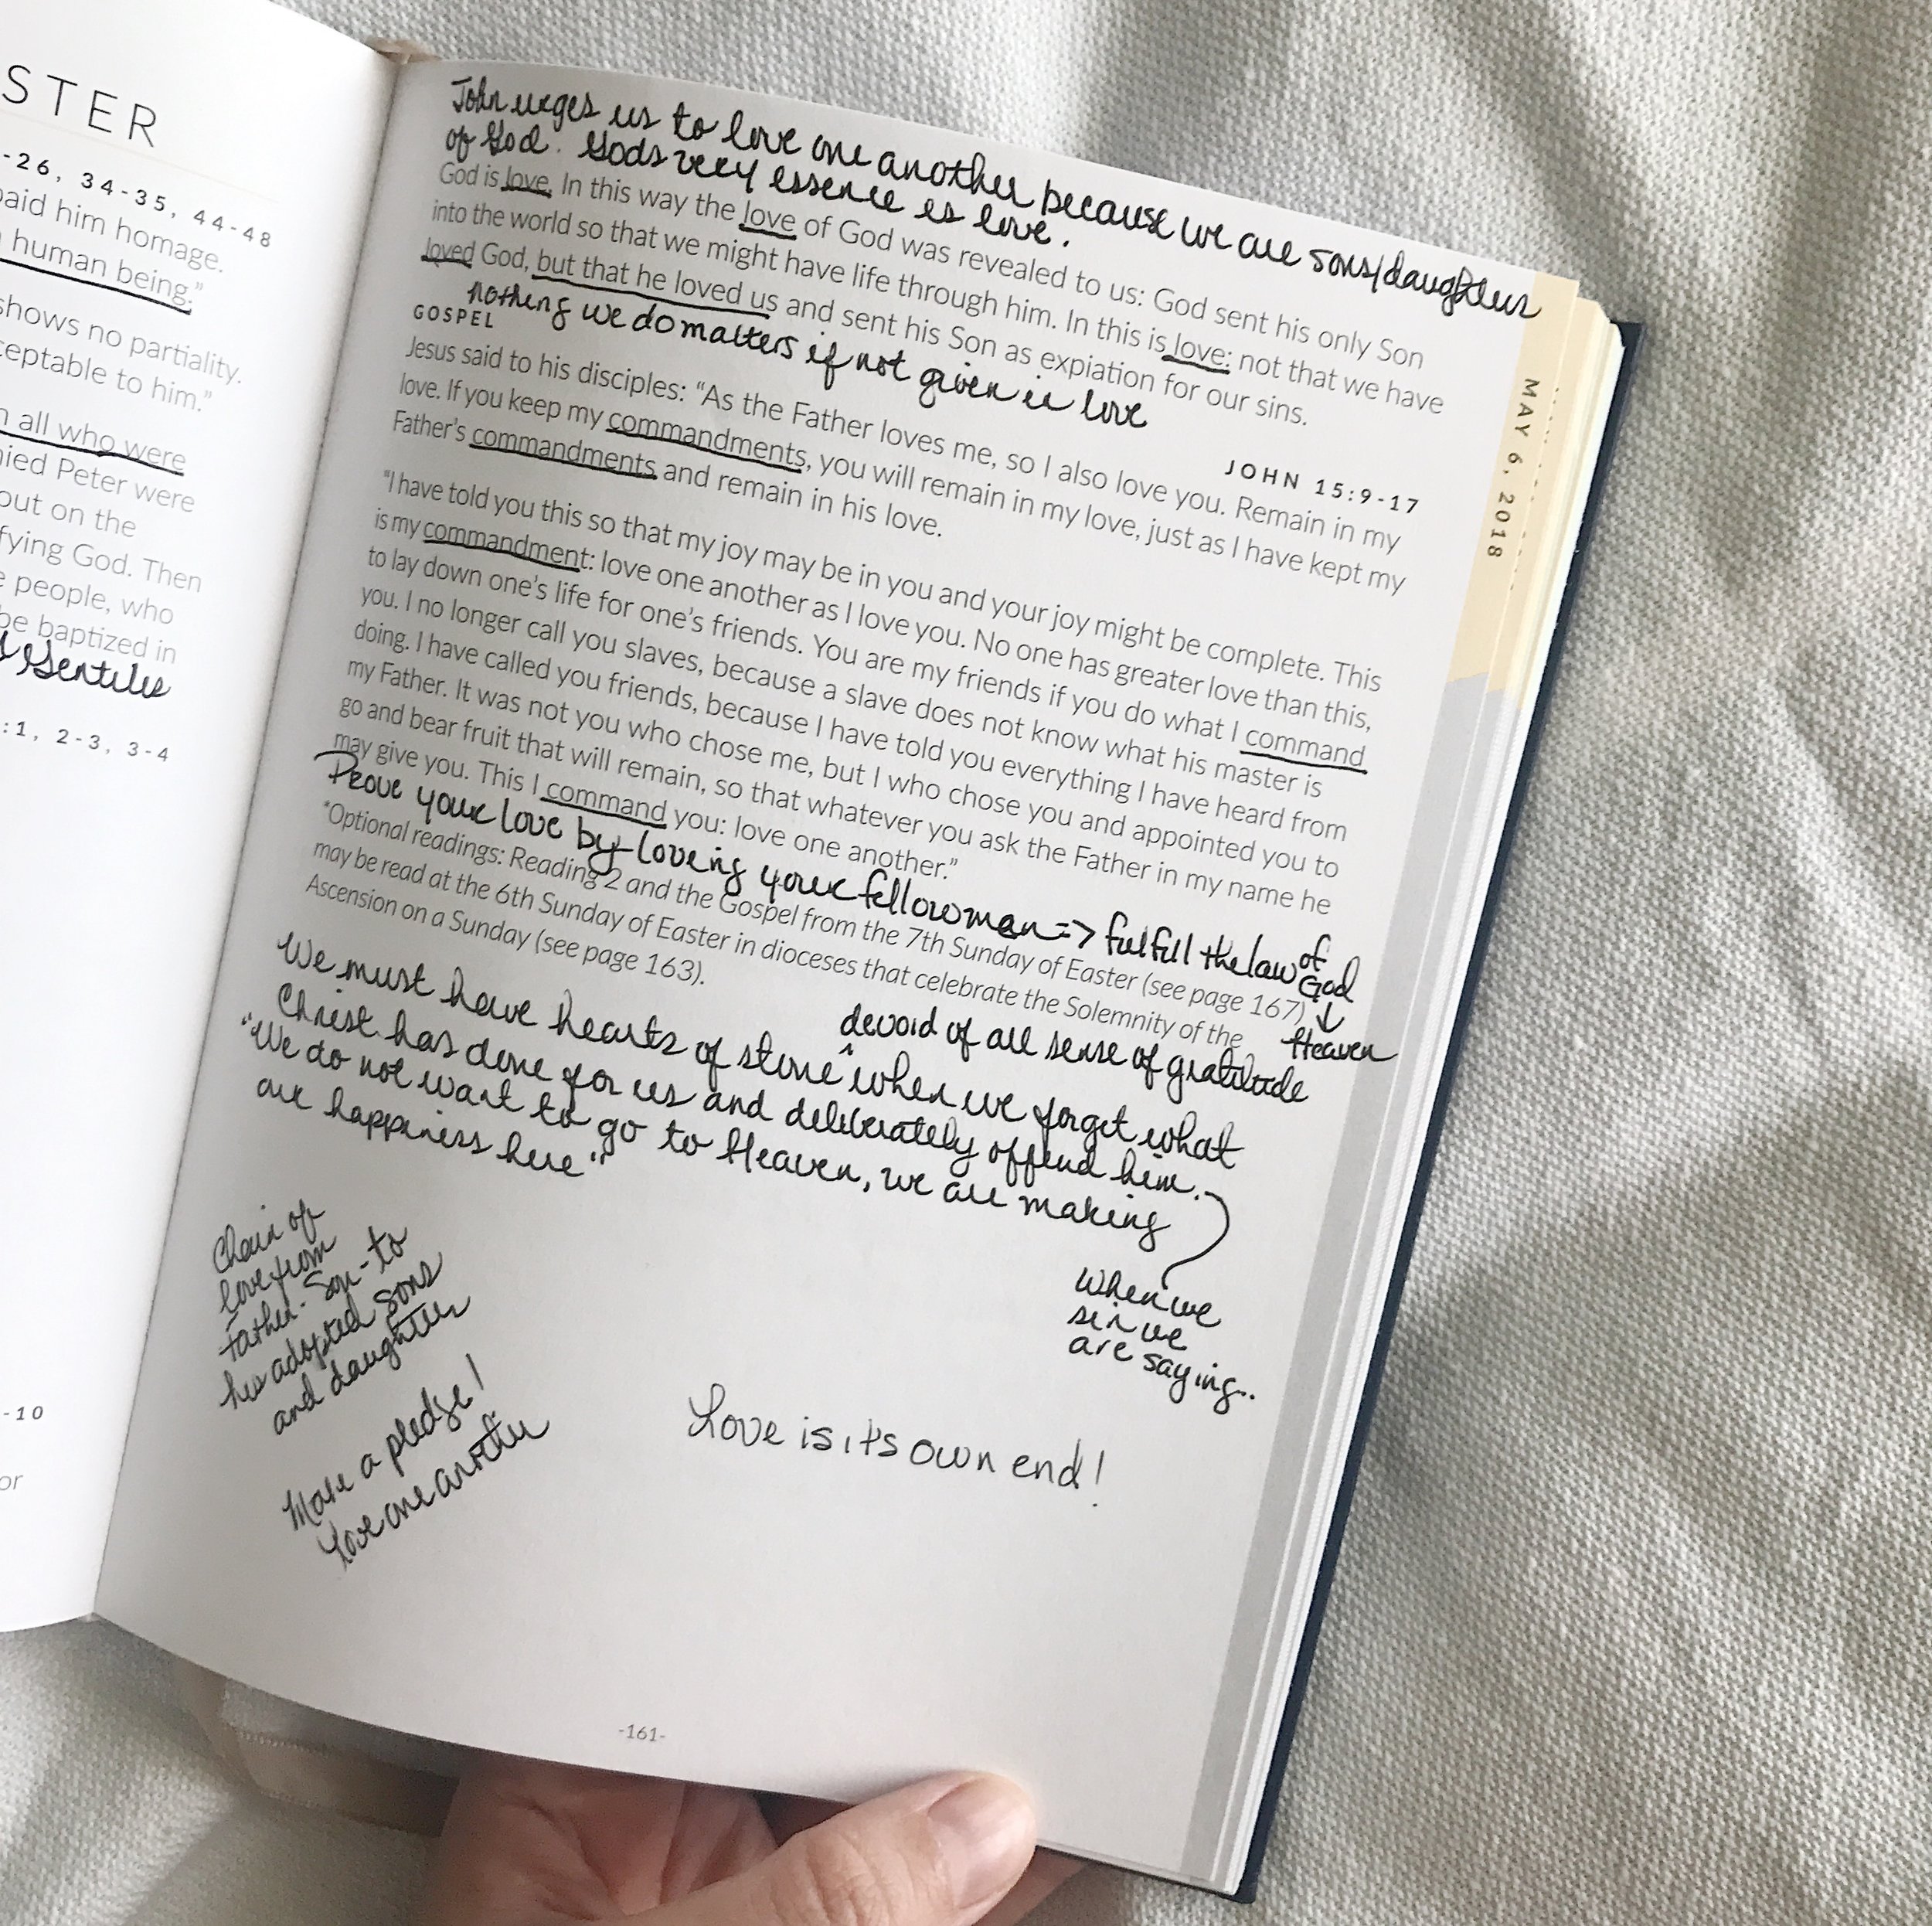 STER
-26, 34-35, 44-48
paid him homage.
human being."
shows no partiality.
ceptable to him."
n all who were
nied Peter were
out on the
fying God. Then
e people, who
be baptized in
Gentiles
:1, 2-3, 3-4
-10
or
John urges us to love one another because we are sons/daughters
of God. Gods very essence is love.
God is love. In this way the love of God was revealed to us: God sent his only Son
into the world so that we might have life through him. In this is love: not that we have
loved God, but that he loved us and sent his Son as expiation for our sins.
nothing we do matters if not given in love
GOSPEL
JOHN 15:9-17
Jesus said to his disciples: "As the Father loves me, so I also love you. Remain in my
love. If you keep my commandments, you will remain in my love, just as I have kept my
Father's commandments and remain in his love.
"I have told you this so that my joy may be in you and your joy might be complete. This
is my commandment: love one another as I love you. No one has greater love than this,
to lay down one's life for one's friends. You are my friends if you do what I command
you. I no longer call you slaves, because a slave does not know what his master is
doing. I have called you friends, because I have told you everything I have heard from
my Father. It was not you who chose me, but I who chose you and appointed you to
go and bear fruit that will remain, so that whatever you ask the Father in my name he
may give you. This I command you: love one another."
Prove your love by loving your fellow man => fulfill the law of
God
↓
Heaven
*Optional readings: Reading 2 and the Gospel from the 7th Sunday of Easter (see page 167)
may be read at the 6th Sunday of Easter in dioceses that celebrate the Solemnity of the
Ascension on a Sunday (see page 163).
devoid of all sense of gratitude
We must have hearts of stone ^ when we forget what
Christ has done for us and deliberately offend him.
"We do not want to go to Heaven, we are making
our happiness here"
When we
sin we
are saying..
Chain of
love from
Father-Son-to
his adopted sons
and daughters
Make a pledge!
Love one another
Love is it's own end!
-161-
MAY 6, 2018